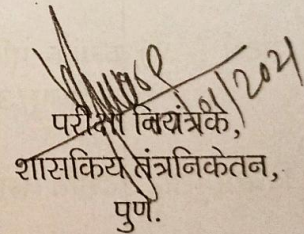 /2021
परीक्षा नियंत्रक,
शासकिय तंत्रनिकेतन,
पुणे.